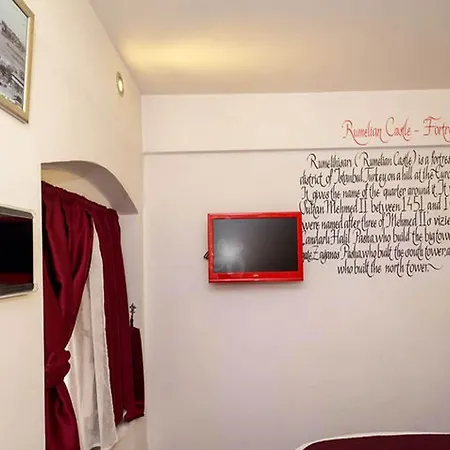 Rumelian Castle - Fortr
Rumelihisarı (Rumelian Castle) is a fortres
district of Istanbul, Turkey, on a hill at the Euro
It gives the name of the quarter around it. It
Sultan Mehmed II between 1451 and 1
were named after three of Mehmed II's vizie
Çandarlı Halil Pasha, who build the big tow
Zaganos Pasha, who built the south tower, a
who built the north tower.